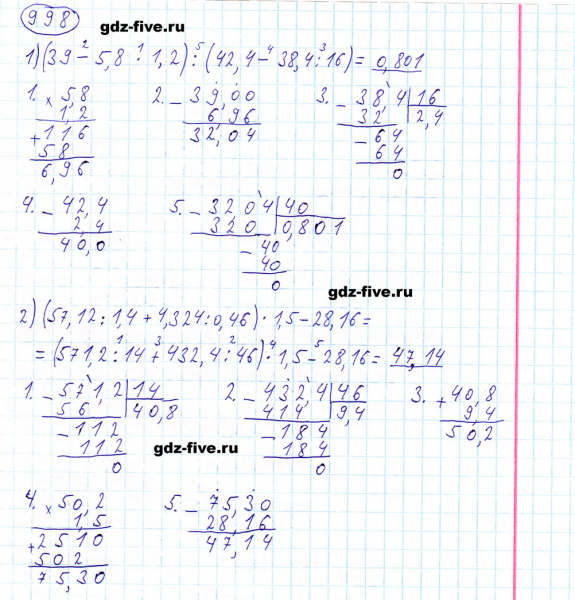 998
gdz-five.ru
1) (39 - 5,8 · 1,2) : (42,4 - 38,4 : 16) = 0,801
2 1 5 4 3
1. × 5,8 2. - 39,00 3. - 38,4 | 16
1,2 6,96 32 2,4
+ 116 32,04 - 64
58 64
6,96 0
4. - 42,4 5. - 32,04 | 40
2,4 320 0,801
40,0 - 40
40
0
gdz-five.ru
2) (57,12 : 1,4 + 4,324 : 0,46) · 1,5 - 28,16 =
1 3 2 4 5
= (571,2 : 14 + 432,4 : 46) · 1,5 - 28,16 = 47,14
1. - 571,2 | 14 2. - 432,4 | 46 3. + 40,8
56 40,8 414 9,4 9,4
- 112 - 184 50,2
112 184
0 0
gdz-five.ru
4. × 50,2 5. - 75,30
1,5 28,16
+ 2510 47,14
502
75,30